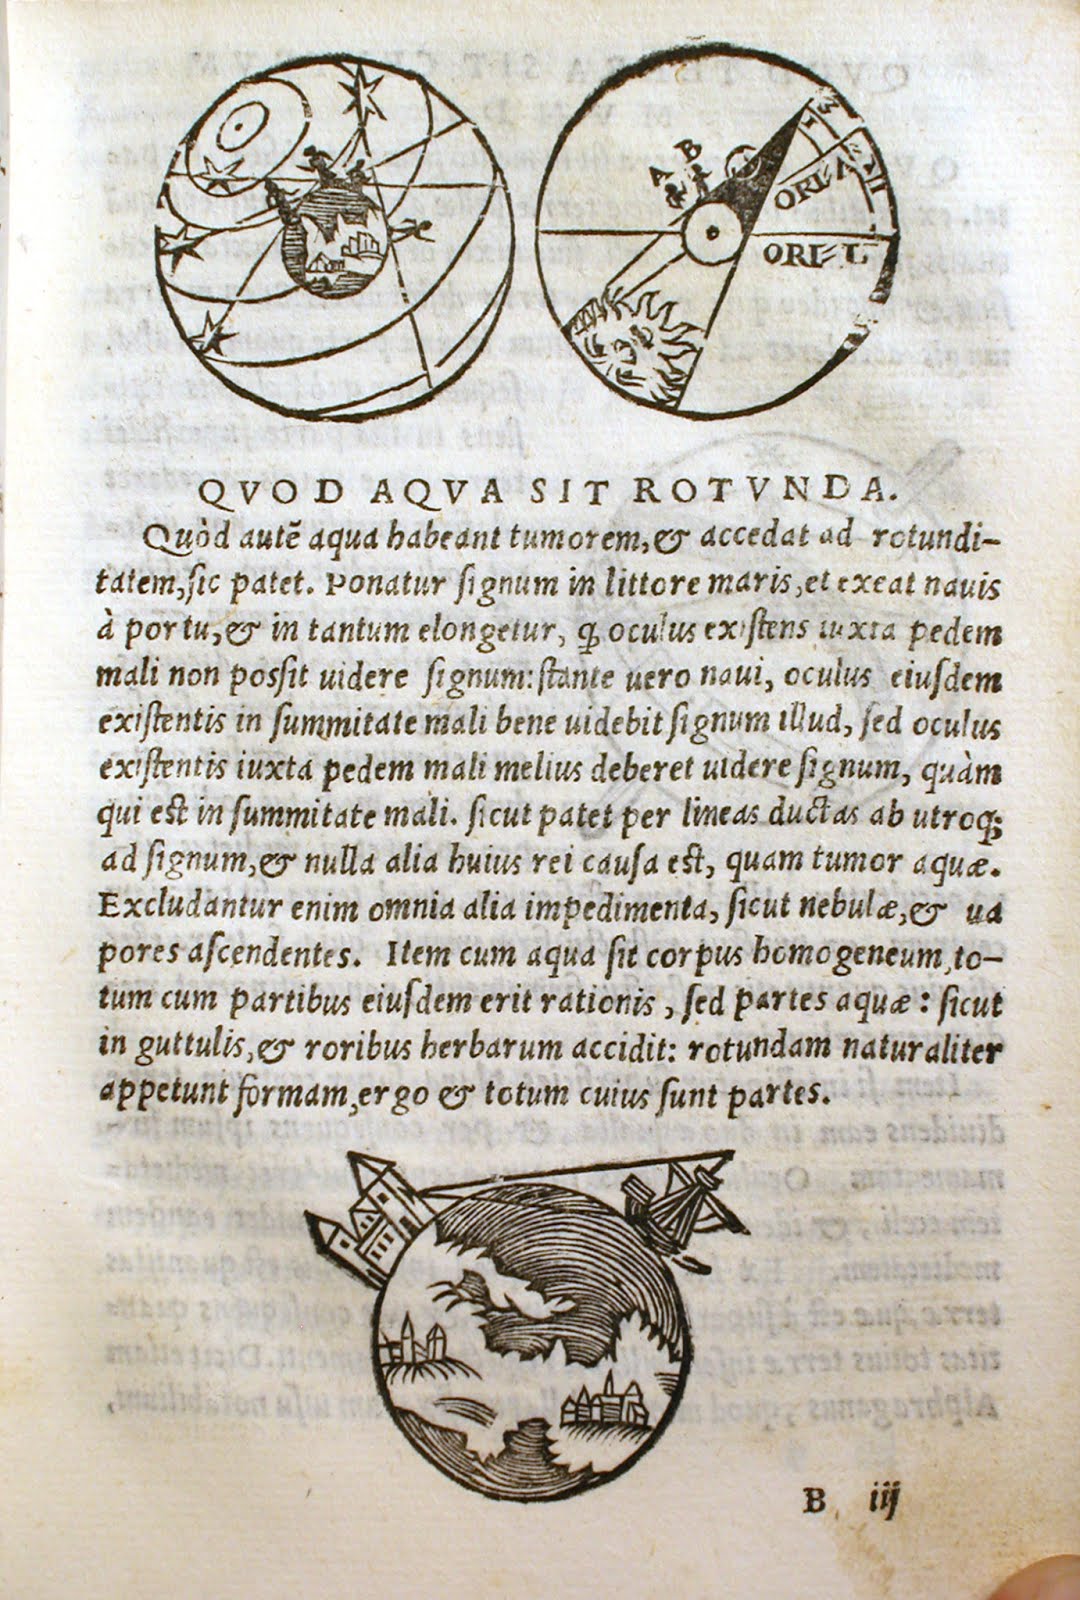 A B
ORI A
ORI L
QVOD AQVA SIT ROTVNDA.
Quòd autẽ aqua habeant tumorem, & accedat ad rotundi-
tatem, sic patet. Ponatur signum in littore maris, et exeat nauis
à portu, & in tantum elongetur, ꝙ oculus existens iuxta pedem
mali non possit uidere signum: stante uero naui, oculus eiusdem
existentis in summitate mali bene uidebit signum illud, sed oculus
existentis iuxta pedem mali melius deberet uidere signum, quàm
qui est in summitate mali. sicut patet per lineas ductas ab utroq;
ad signum, & nulla alia huius rei causa est, quam tumor aquæ.
Excludantur enim omnia alia impedimenta, sicut nebulæ, & ua
pores ascendentes. Item cum aqua sit corpus homogeneum, to-
tum cum partibus eiusdem erit rationis, sed partes aquæ: sicut
in guttulis, & roribus herbarum accidit: rotundam naturaliter
appetunt formam, ergo & totum cuius sunt partes.
B iij